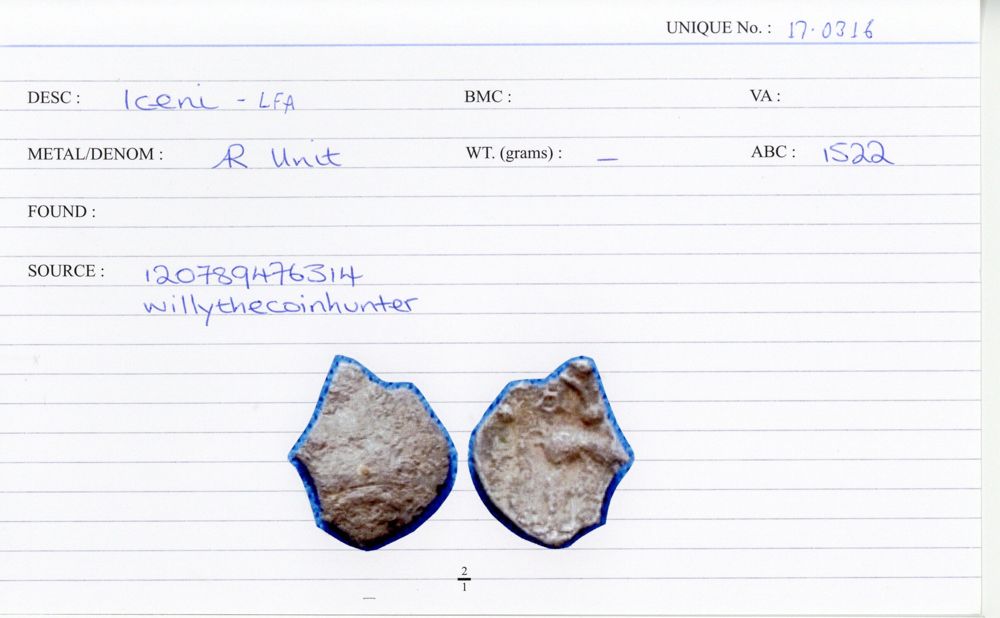 UNIQUE No. : 17.0316
DESC : Iceni - LFA BMC : VA :
METAL/DENOM : AR Unit WT. (grams) : — ABC : 1522
FOUND :
SOURCE : 120789476314
willythecoinhunter
2
1